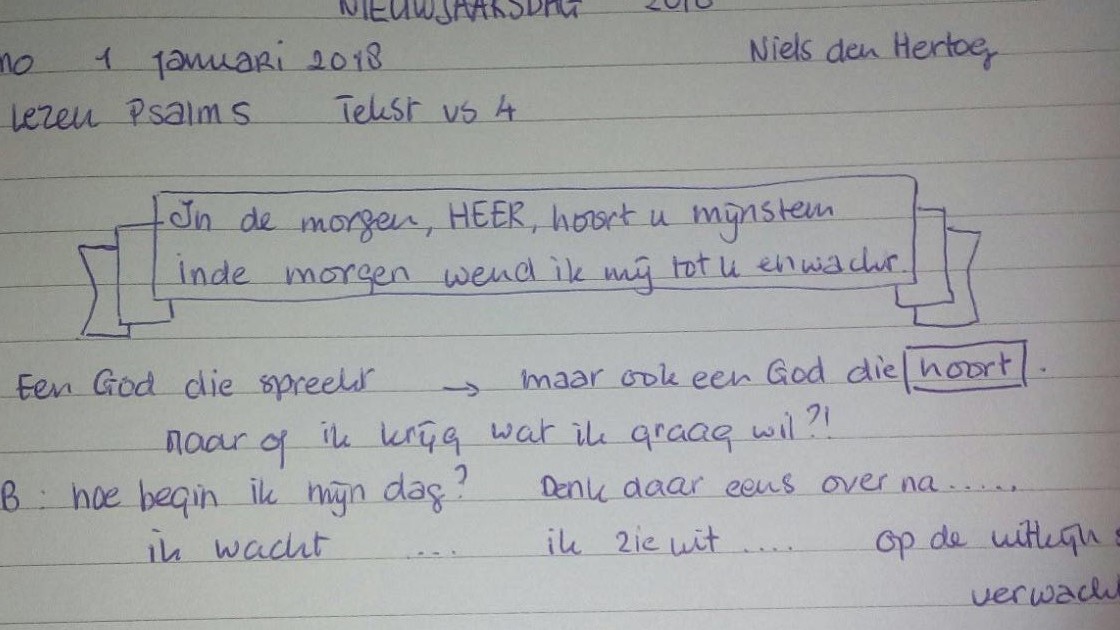 NIEUWJAARSDAG 2018
mo 1 januari 2018 Niels den Hertog
lezen Psalm 5 Tekst vs 4
In de morgen, HEER, hoort u mijn stem
in de morgen wend ik mij tot u en wacht.
Een God die spreekt → maar ook een God die hoort.
maar of ik krijg wat ik graag wil?!
B: hoe begin ik mijn dag? Denk daar eens over na.....
ik wacht .... ik zie uit .... op de uitkijk